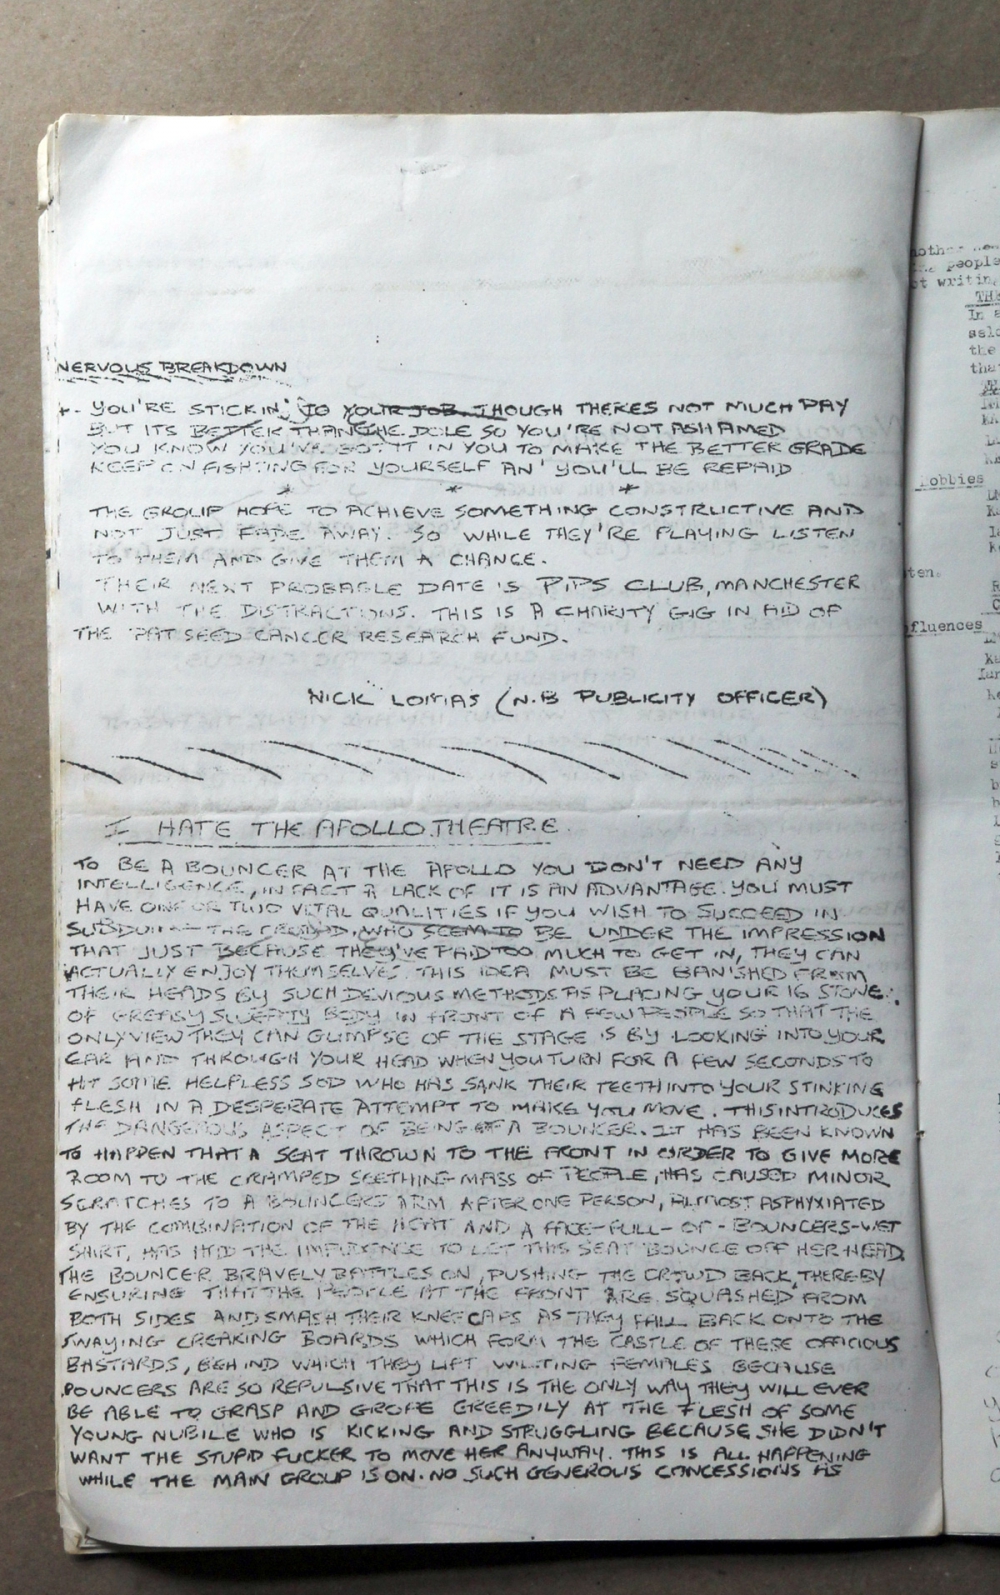 NERVOUS BREAKDOWN
YOU'RE STICKIN' TO YOUR JOB THOUGH THERES NOT MUCH PAY
BUT ITS BETTER THAN THE DOLE SO YOU'RE NOT ASHAMED
YOU KNOW YOU'VE GOT IT IN YOU TO MAKE THE BETTER GRADE
KEEP ON FIGHTING FOR YOURSELF AN' YOU'LL BE REPAID
* * *
THE GROUP HOPE TO ACHIEVE SOMETHING CONSTRUCTIVE AND
NOT JUST FADE AWAY. SO WHILE THEY'RE PLAYING LISTEN
TO THEM AND GIVE THEM A CHANCE.
THEIR NEXT PROBABLE DATE IS PIPS CLUB, MANCHESTER
WITH THE DISTRACTIONS. THIS IS A CHARITY GIG IN AID OF
THE PAT SEED CANCER RESEARCH FUND.
NICK LOMAS (N.B PUBLICITY OFFICER)
I HATE THE APOLLO THEATRE
TO BE A BOUNCER AT THE APOLLO YOU DON'T NEED ANY
INTELLIGENCE, IN FACT A LACK OF IT IS AN ADVANTAGE. YOU MUST
HAVE ONE OR TWO VITAL QUALITIES IF YOU WISH TO SUCCEED IN
SUBDUING THE CROWD WHO SEEM TO BE UNDER THE IMPRESSION
THAT JUST BECAUSE THEY'VE PAID TOO MUCH TO GET IN, THEY CAN
ACTUALLY ENJOY THEMSELVES. THIS IDEA MUST BE BANISHED FROM
THEIR HEADS BY SUCH DEVIOUS METHODS AS PLACING YOUR 16 STONE
OF GREASY SWEATY BODY IN FRONT OF A FEW PEOPLE SO THAT THE
ONLY VIEW THEY CAN GLIMPSE OF THE STAGE IS BY LOOKING INTO YOUR
EAR AND THROUGH YOUR HEAD WHEN YOU TURN FOR A FEW SECONDS TO
HIT SOME HELPLESS SOD WHO HAS SANK THEIR TEETH INTO YOUR STINKING
FLESH IN A DESPERATE ATTEMPT TO MAKE YOU MOVE. THIS INTRODUCES
THE DANGEROUS ASPECT OF BEING A BOUNCER. IT HAS BEEN KNOWN
TO HAPPEN THAT A SEAT THROWN TO THE FRONT IN ORDER TO GIVE MORE
ROOM TO THE CRAMPED SEETHING MASS OF PEOPLE, HAS CAUSED MINOR
SCRATCHES TO A BOUNCERS ARM AFTER ONE PERSON, ALMOST ASPHYXIATED
BY THE COMBINATION OF THE HEAT AND A FACE-FULL-OF-BOUNCERS-WET
SHIRT, HAS HAD THE IMPUDENCE TO LET THIS SEAT BOUNCE OFF HER HEAD.
THE BOUNCER BRAVELY BATTLES ON, PUSHING THE CROWD BACK, THEREBY
ENSURING THAT THE PEOPLE AT THE FRONT ARE SQUASHED FROM
BOTH SIDES AND SMASH THEIR KNEECAPS AS THEY FALL BACK ONTO THE
SWAYING CREAKING BOARDS WHICH FORM THE CASTLE OF THESE OFFICIOUS
BASTARDS, BEHIND WHICH THEY LIFT WILTING FEMALES BECAUSE
BOUNCERS ARE SO REPULSIVE THAT THIS IS THE ONLY WAY THEY WILL EVER
BE ABLE TO GRASP AND GROPE GREEDILY AT THE FLESH OF SOME
YOUNG NUBILE WHO IS KICKING AND STRUGGLING BECAUSE SHE DIDN'T
WANT THE STUPID FUCKER TO MOVE HER ANYWAY. THIS IS ALL HAPPENING
WHILE THE MAIN GROUP IS ON. NO SUCH GENEROUS CONCESSIONS AS
people
writing
In
the